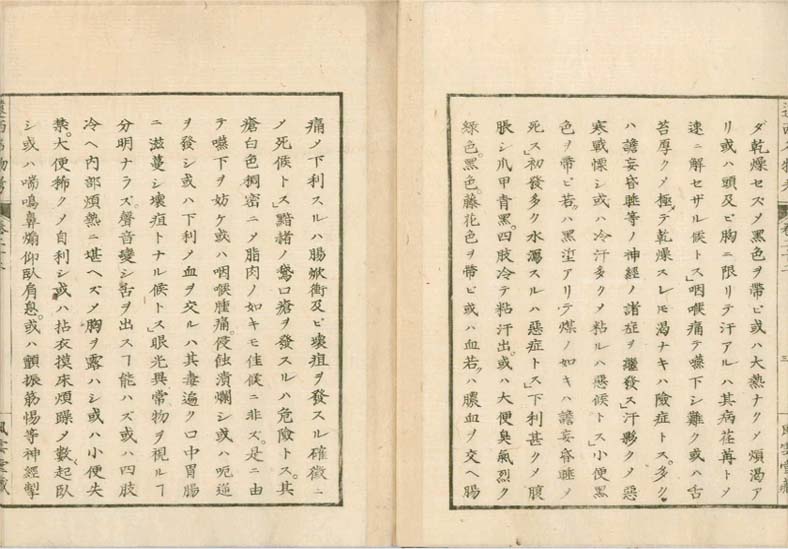 ダ乾燥セズメ黒色ヲ帯ビ或ハ大熱ナクメ煩渇ア
リ或ハ頭及ビ胸ニ限リテ汗アルハ其病荏苒トメ
速ニ解セザル候トス」咽喉痛テ嚥下シ難ク或ハ舌
苔厚クメ極テ乾燥スレ𪜈渇ナキハ険症トス。多ク
ハ譫妄昏睡等ノ神経ノ諸症ヲ継發ス」汗夥クメ悪
寒戦慄シ或ハ冷汗多クメ粘ルハ悪候トス」小便黒
色ヲ帯ビ若クハ黒垽アリテ煤ノ如キハ譫妄昏睡ノ
死ス」初發多ク水瀉スルハ悪症トス」下利甚クメ腹
脹シ爪甲青黒。四肢冷テ粘汗出。或ハ大便臭氣烈ク
緑色。黒色。藤花色ヲ帯ビ或ハ血若クハ膿血ヲ交ヘ腸
痛ノ下利スルハ腸焮衝及ビ瘭疽ヲ發スル確徴ニ
ノ死候トス」黯緒ノ鵞口瘡ヲ發スルハ危險トス。其
瘡白色稠密ニメ脂肉ノ如キモ佳候ニ非ズ。是ニ由
テ嚥下ヲ妨ケ或ハ咽喉腫痛。侵蝕潰爛シ或ハ呃逆
ヲ發シ或ハ下利メ血ヲ交ルハ其毒遍ク口中胃腸
ニ滋蔓シ壊疽トナル候トス」眼光異常物ヲ視ルヿ
分明ナラズ。聲音變シ舌ヲ出スヿ能ハズ或ハ四肢
冷ヘ内部煩熱ニ堪ヘズメ胸ヲ露ハシ或ハ小便失
禁。大便稀クメ自利シ或ハ拈衣摸床煩躁メ數起臥
シ或ハ喘鳴鼻煽仰臥肩息。或ハ顫振筋惕等神経掣